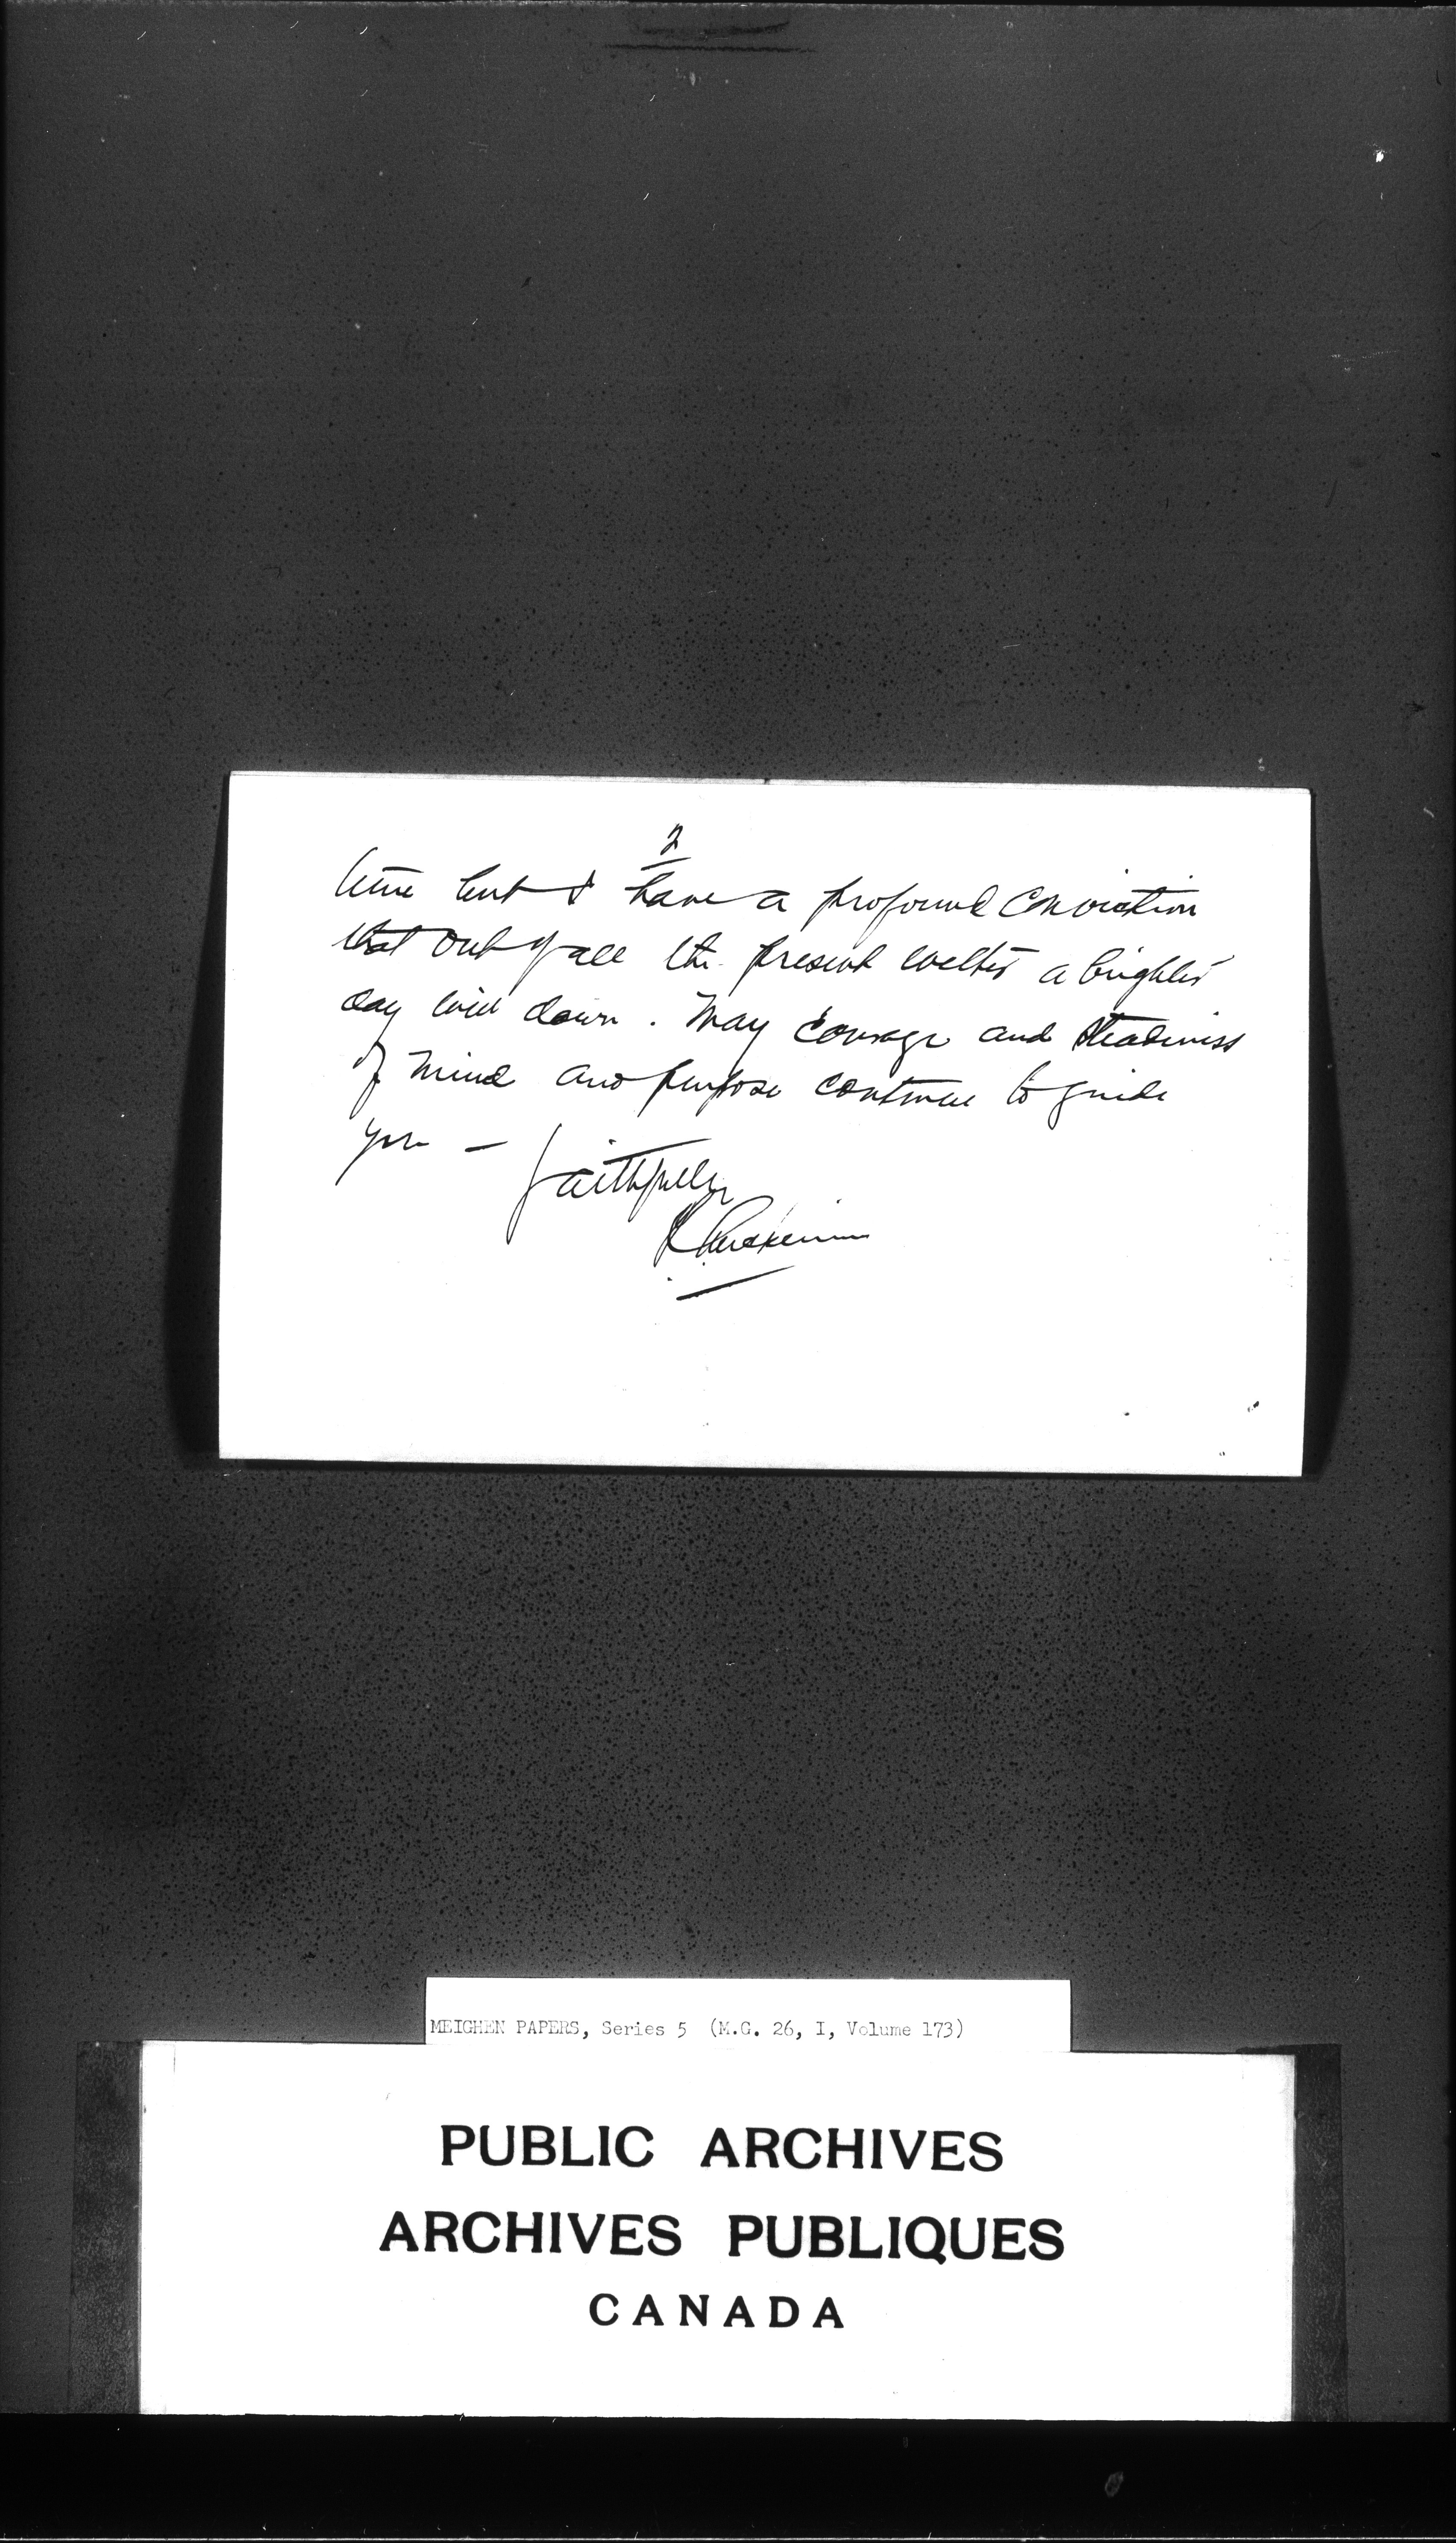 2
time but I have a profound conviction
that out of all the present welter a brighter
day will dawn. May courage and steadiness
of mind and purpose continue to guide
you —
Faithfully
MEIGHEN PAPERS, Series 5 (M.G. 26, I, Volume 173)
PUBLIC ARCHIVES
ARCHIVES PUBLIQUES
CANADA